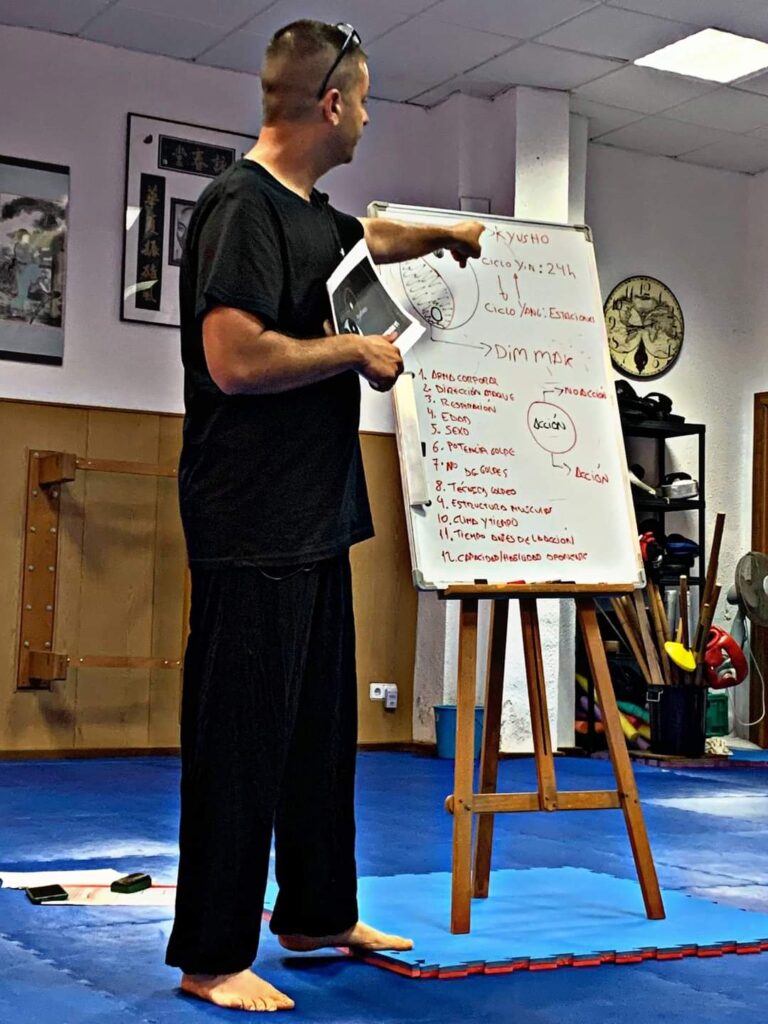 KYUSHO
CICLO YIN: 24h
CICLO YANG: ESTACIONES
DIM MAK
1. ARMA CORPORAL
2. DIRECCIÓN ATAQUE
3. RESPIRACIÓN
4. EDAD
5. SEXO
6. POTENCIA GOLPE
7. Nº DE GOLPES
8. TÉCNICA GOLPEO
9. ESTRUCTURA MUSCULAR
10. CLIMA Y TIEMPO
11. TIEMPO ANTES DE LA ACCIÓN
12. CAPACIDAD/HABILIDAD OPONENTE
NO ACCIÓN
ACCIÓN
ACCIÓN